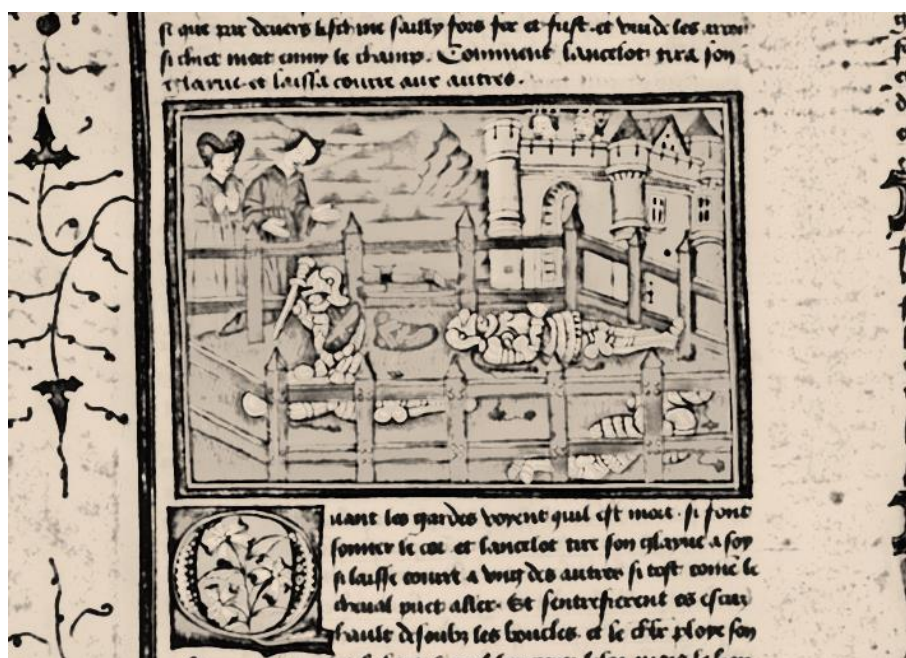 si que par devers leschine sailly fors fer et fust. et vuide les arcons
si chiet mort emmy le champ. Comment lancelot tira son
glayue et laissa courre aux autres.
Quant les gardes voyent quil est mort. si font
sonner le cor. et lancelot tire son glayue a soy
si laisse courre a vng des autres si tost come le
cheual puet aller. Et sentrefierent es escuz
hault desoubz les boucles. et le chlr ploye son